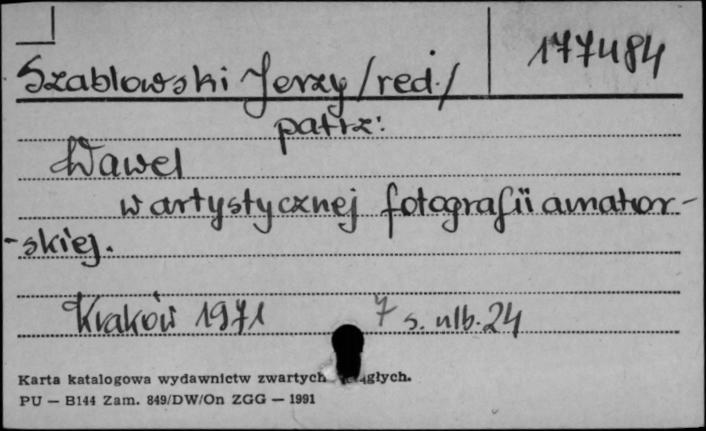 177484
Szablowski Jerzy /red./
patrz:
Wawel
w artystycznej fotografii amator-
-skiej.
Kraków 1971 7 s. nlb. 24
Karta katalogowa wydawnictw zwartych
PU — B144 Zam. 849/DW/On ZGG — 1991